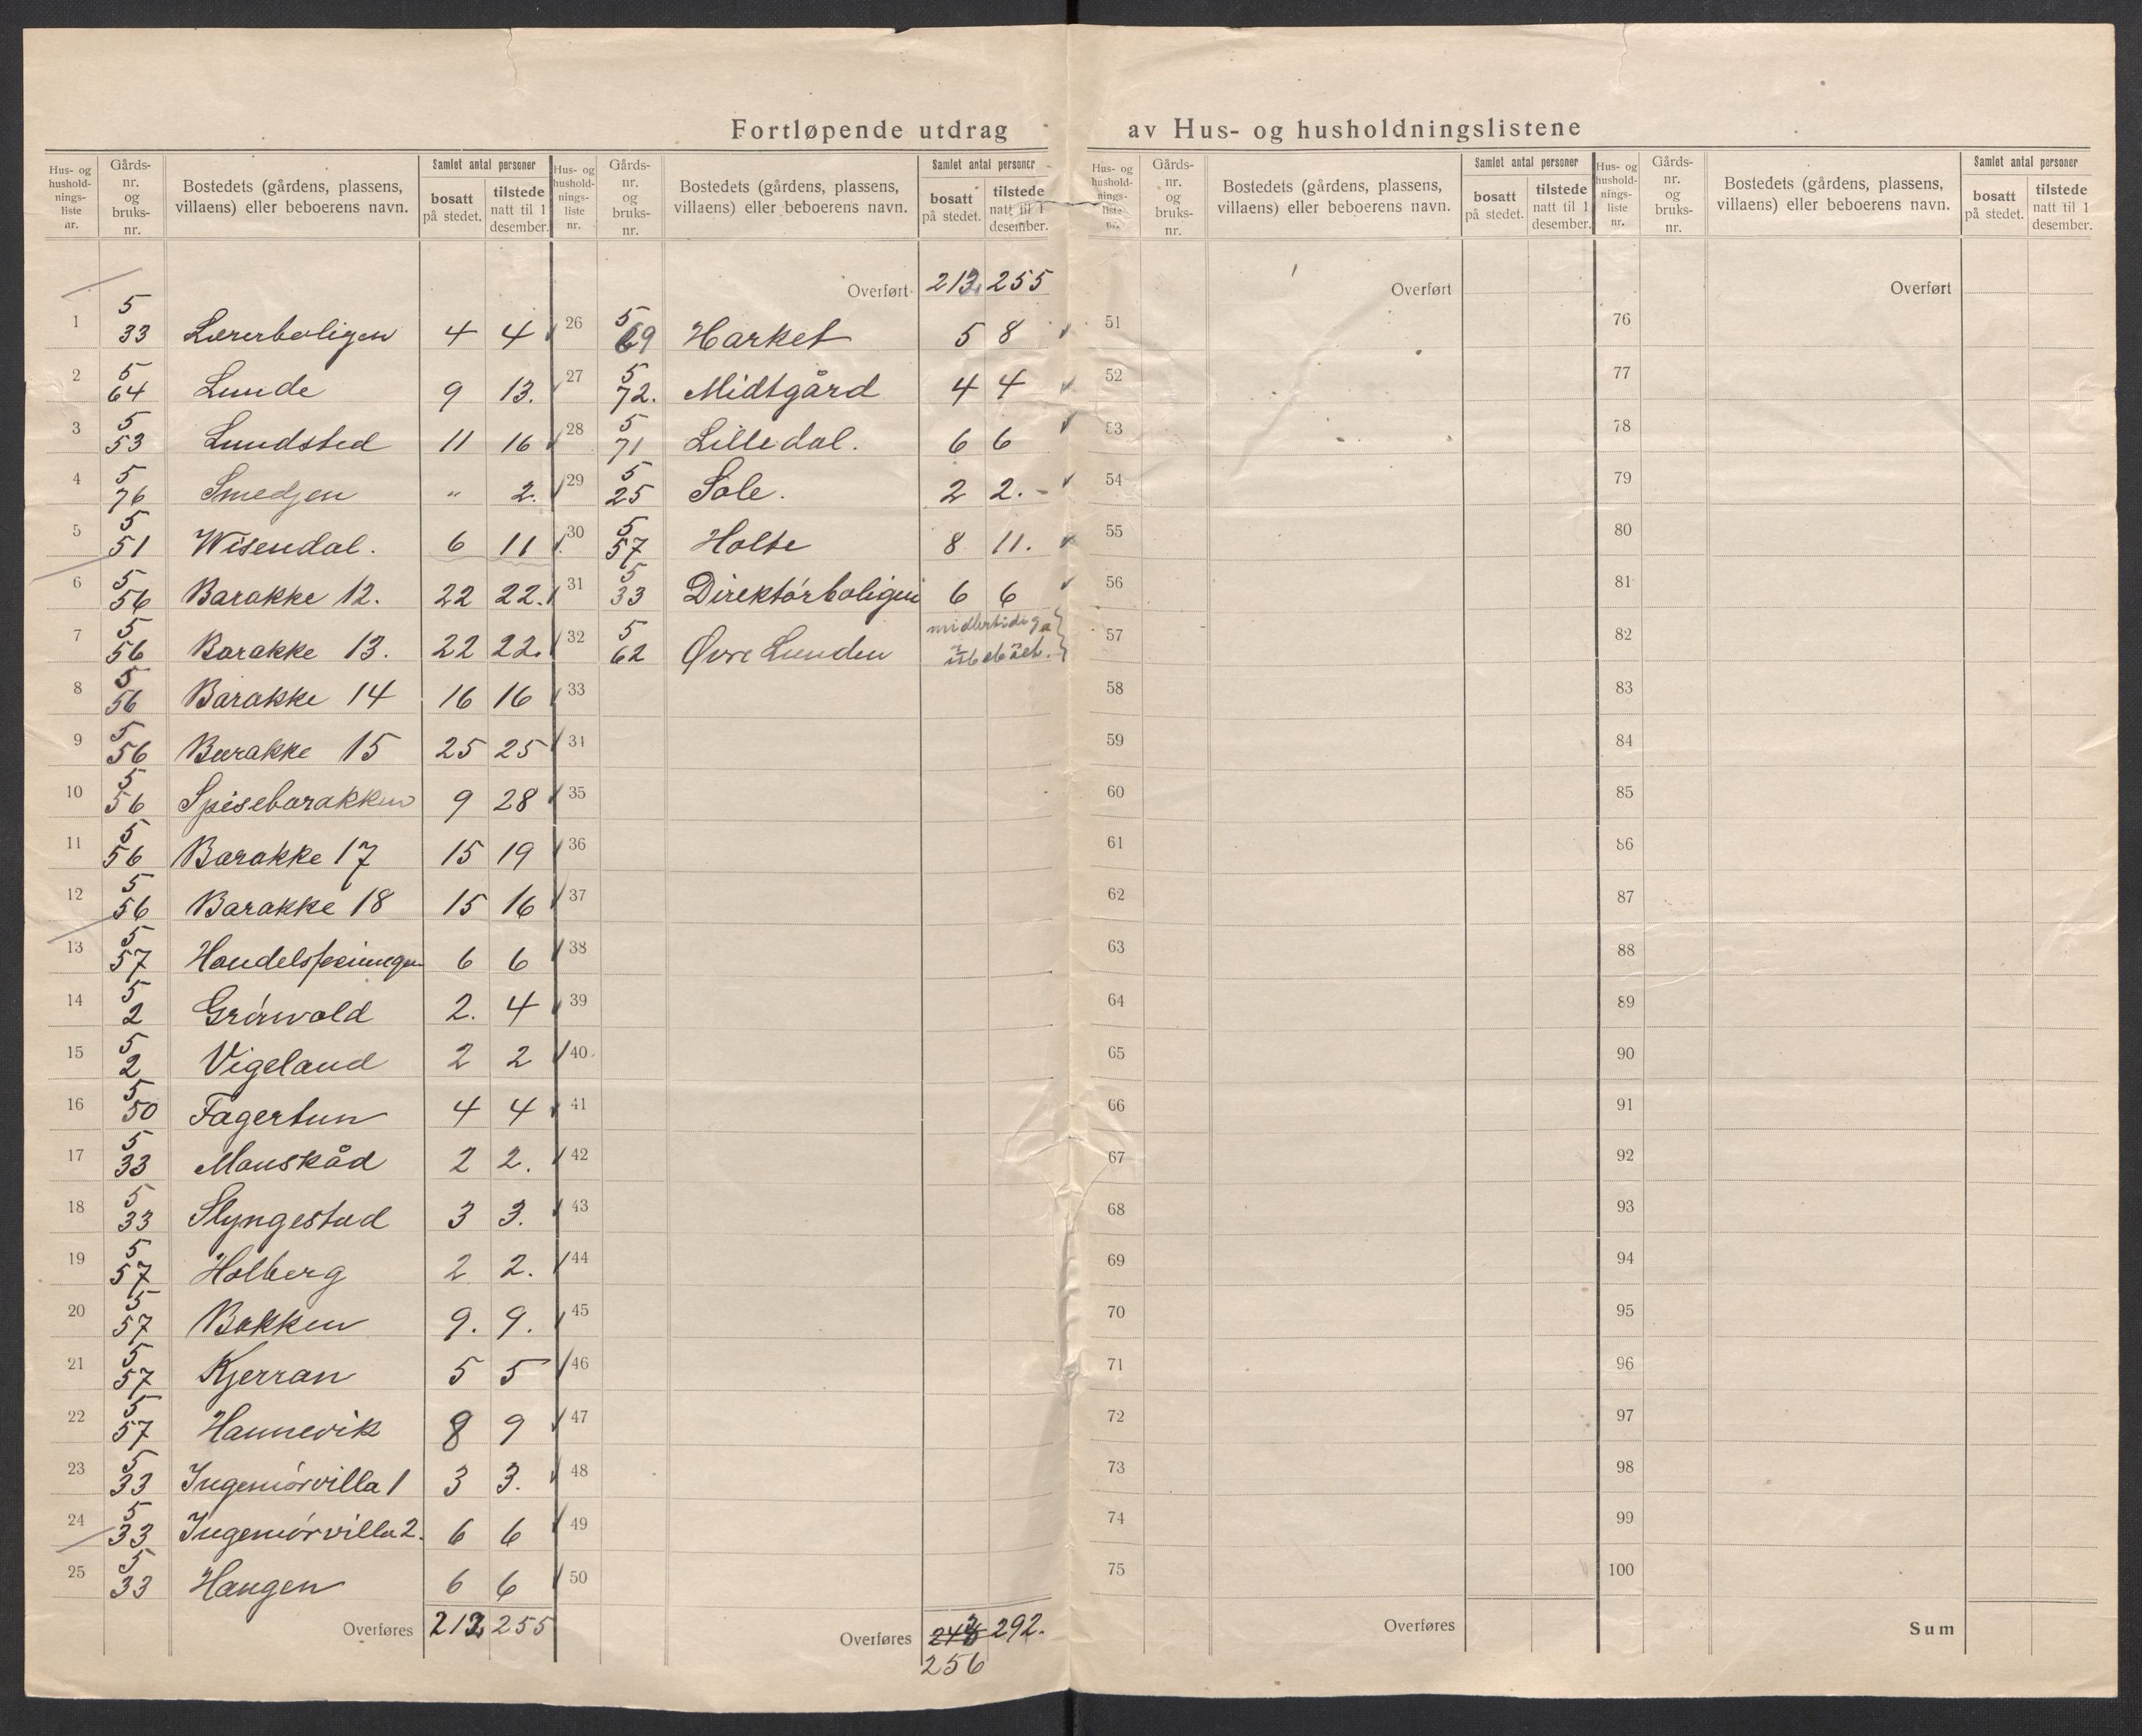 Fortløpende utdrag av Hus- og husholdningslistene
Hus- og hushold-nings-liste nr. | Gårds-nr. og bruks-nr. | Bostedets (gårdens, plassens, villaens) eller beboerens navn. | Samlet antal personer | bosatt på stedet. | tilstede natt til 1 desember.
1 5/33 Lærerboligen 4 4
2 5/64 Lunde 9 13.
3 5/53 Lundsted 11 16
4 5/76 Smedjen " 2.
5 5/51 Wisendal. 6 11
6 5/56 Barakke 12. 22 22.
7 5/56 Barakke 13. 22 22.
8 5/56 Barakke 14 16 16
9 5/56 Barakke 15 25 25
10 5/56 Spisebarakken 9 28
11 5/56 Barakke 17 15 19
12 5/56 Barakke 18 15 16
13 5/57 6 6
14 5/2 Grönvold 2. 4
15 5/2 Vigeland 2 2
16 5/50 Fagertun 4 4
17 5/33 Monskåd 2 2.
18 5/33 Slyngestad 3 3.
19 5/57 Holberg 2 2.
20 5/57 Bakken 9. 9.
21 5/57 Kjerran 5 5
22 5/57 Hannevik 8 9
23 5/33 Ingeniörvilla 1 3 3.
24 5/33 Ingeniörvilla 2. 6 6
25 5/33 Haugen 6 6
Overføres 213 255
Hus- og hushold-nings-liste nr. | Gårds-nr. og bruks-nr. | Bostedets (gårdens, plassens, villaens) eller beboerens navn. | Samlet antal personer | bosatt på stedet. | tilstede natt til 1 desember.
Overført 213 255
26 5/69 Harket 5 8
27 5/72. Midtgård 4 4
28 5/71 Lilledal. 6 6
29 5/25 Sole. 2 2.-
30 5/57 Holte 8 11.
31 5/33 Direktörboligen 6 6
32 5/62 Øvre Lunden midlertidiga utbebået.
33
34
35
36
37
38
39
40
41
42
43
44
45
46
47
48
49
50
Overføres 292.
256
Hus- og hushold-nings-liste nr. | Gårds-nr. og bruks-nr. | Bostedets (gårdens, plassens, villaens) eller beboerens navn. | Samlet antal personer | bosatt på stedet. | tilstede natt til 1 desember.
Overført
51
52
53
54
55
56
57
58
59
60
61
62
63
64
65
66
67
68
69
70
71
72
73
74
75
Overføres
Hus- og husholdnings-liste nr. | Gårds-nr. og bruks-nr. | Bostedets (gårdens, plassens, villaens) eller beboerens navn. | Samlet antal personer | bosatt på stedet. | tilstede natt til 1 desember.
Overført
76
77
78
79
80
81
82
83
84
85
86
87
88
89
90
91
92
93
94
95
96
97
98
99
100
Sum